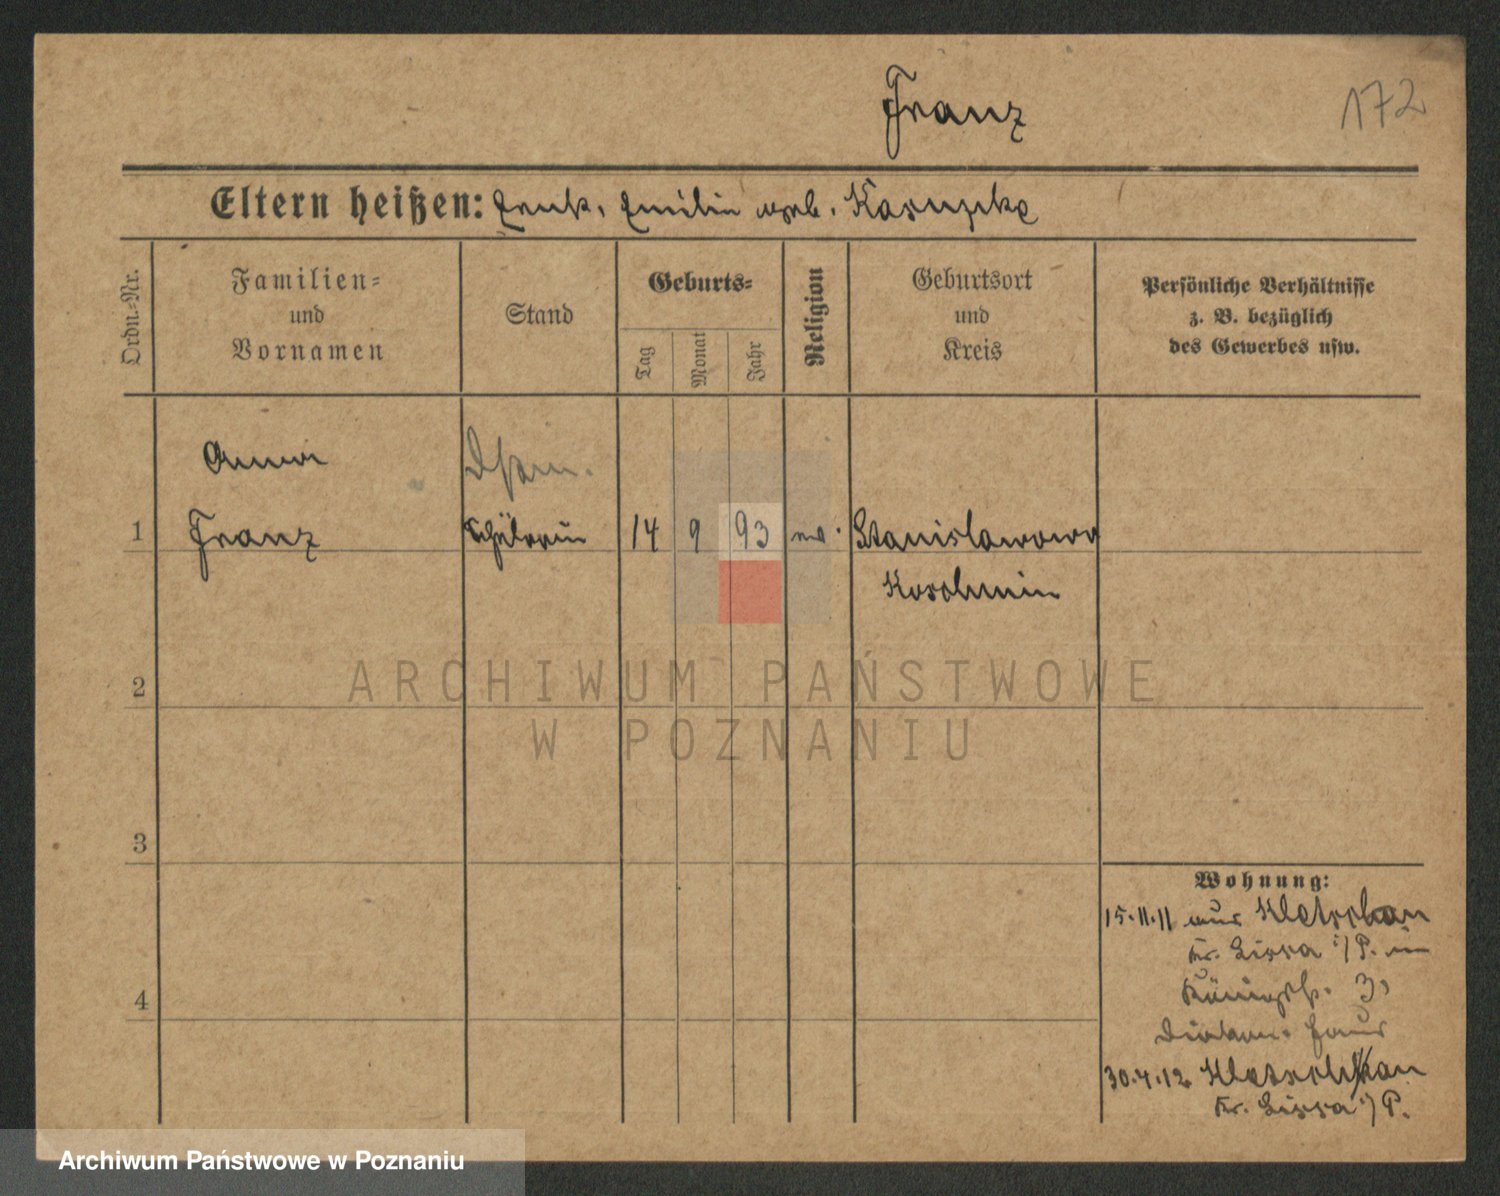 Franz
172
Eltern heißen: Emilie geb.
Ordn.-Nr.
Familien-
und
Vornamen
Stand
Geburts-
Tag
Monat
Jahr
Religion
Geburtsort
und
Kreis
Persönliche Verhältnisse
z. B. bezüglich
des Gewerbes usw.
Anna
1 Franz Schülerin 14 9 93 ev. Stanislawowo
Koschmin
2
ARCHIWUM PAŃSTWOWE
W POZNANIU
3
Wohnung:
15.11.11 aus
Kr. Lissa i/P. in
4
Königstr. 3,
Diakon. Haus
30.4.12.
Kr. Lissa i/P.
Archiwum Państwowe w Poznaniu